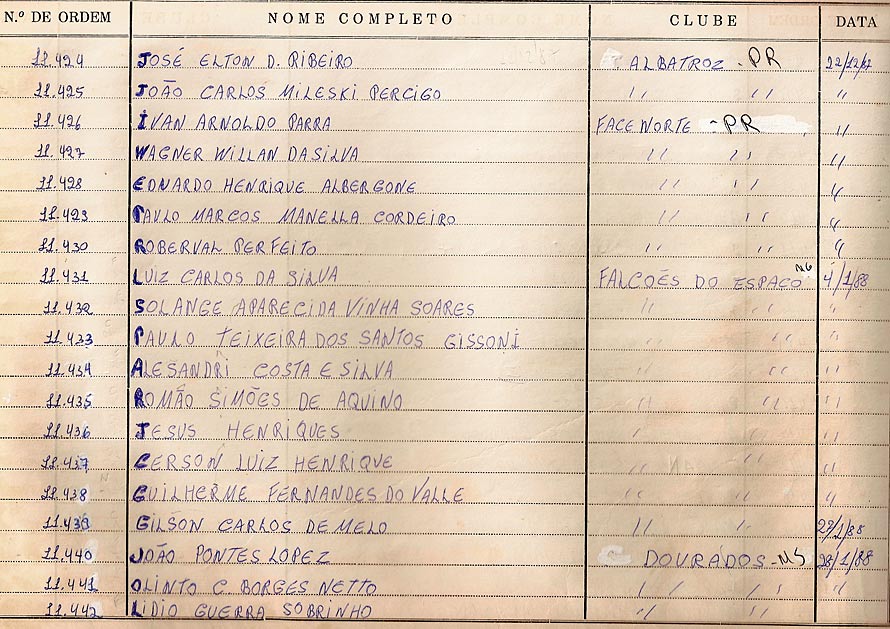 N.º DE ORDEM NOME COMPLETO CLUBE DATA
11.424 JOSÉ ELTON D. RIBEIRO ALBATROZ - PR 22/12/87
11.425 JOÃO CARLOS MILESKI PERCIGO " " "
11.426 IVAN ARNOLDO PARRA FACE NORTE - PR "
11.427 WAGNER WILLAN DA SILVA " " "
11.428 EDUARDO HENRIQUE ALBERGONE " " "
11.429 PAULO MARCOS MANELLA CORDEIRO " " "
11.430 ROBERVAL PERFEITO " " "
11.431 LUIZ CARLOS DA SILVA FALCOÊS DO ESPAÇO MG 4/1/88
11.432 SOLANGE APARECIDA VINHA SOARES " " "
11.433 PAULO TEIXEIRA DOS SANTOS GISSONI " " "
11.434 ALESANDRI COSTA E SILVA " " "
11.435 ROMÃO SIMÕES DE AQUINO " " "
11.436 JESUS HENRIQUES " " "
11.437 GERSON LUIZ HENRIQUE " " "
11.438 GUILHERME FERNANDES DO VALLE " " "
11.439 GILSON CARLOS DE MELO " " 22/1/88
11.440 JOÃO PONTES LOPEZ DOURADOS - MS 28/1/88
11.441 OLINTO C. BORGES NETTO " " "
11.442 LIDIO GUERRA SOBRINHO " " "